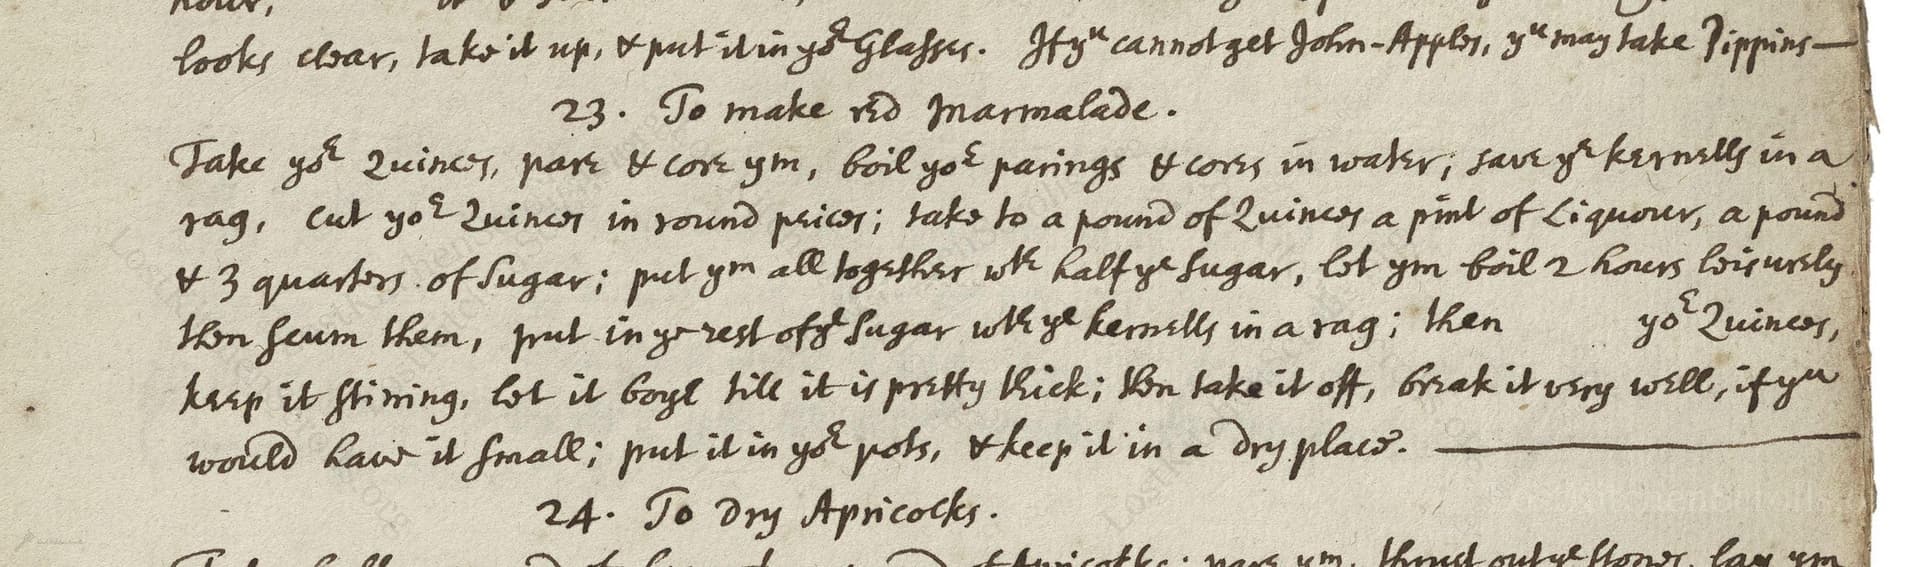 looks clear, take it up, & put it in yor Glasses. If yu cannot get John-Apples, yu may take Pippins—
23. To make red Marmalade.
Take yor Quinces, pare & core ym, boil yor parings & cores in water; save ye kernells in a
rag, cut yor Quinces in round peices; take to a pound of Quinces a pint of Liquour, a pound
& 3 quarters of Sugar; put ym all together wth half ye Sugar, let ym boil 2 hours leisurely
then scum them, put in ye rest of ye Sugar wth ye kernells in a rag; then yor Quinces,
keep it stirring, let it boyl till it is pretty thick; then take it off, break it very well, if yu
would have it small; put it in yor pots, & keep it in a dry place.
24. To dry Apricocks.
of Apricocks; pare ym, thrust out ye stones, lay ym